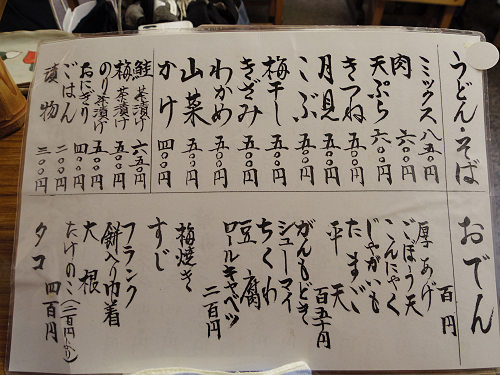 うどん・そば
ミックス 八五〇円
肉 六〇〇円
天ぷら 六〇〇円
きつね 五〇〇円
月見 五〇〇円
こぶ 五〇〇円
梅干し 五〇〇円
きざみ 五〇〇円
わかめ 五〇〇円
山菜 五〇〇円
かけ 四〇〇円
鮭茶漬け 六五〇円
梅茶漬け 五〇〇円
のり茶漬け 五〇〇円
おにぎり 四〇〇円
ごはん 二〇〇円
漬物 三〇〇円
おでん
厚あげ 百円
ごぼう天
こんにゃく
じゃがいも
たまご
平天 百五十円
がんもどき
シューマイ
ちくわ
豆腐
ロールキャベツ 二百円
梅焼き
すじ
フランク
餅入り巾着
大根
たけのこ(二百円より)
タコ 四百円